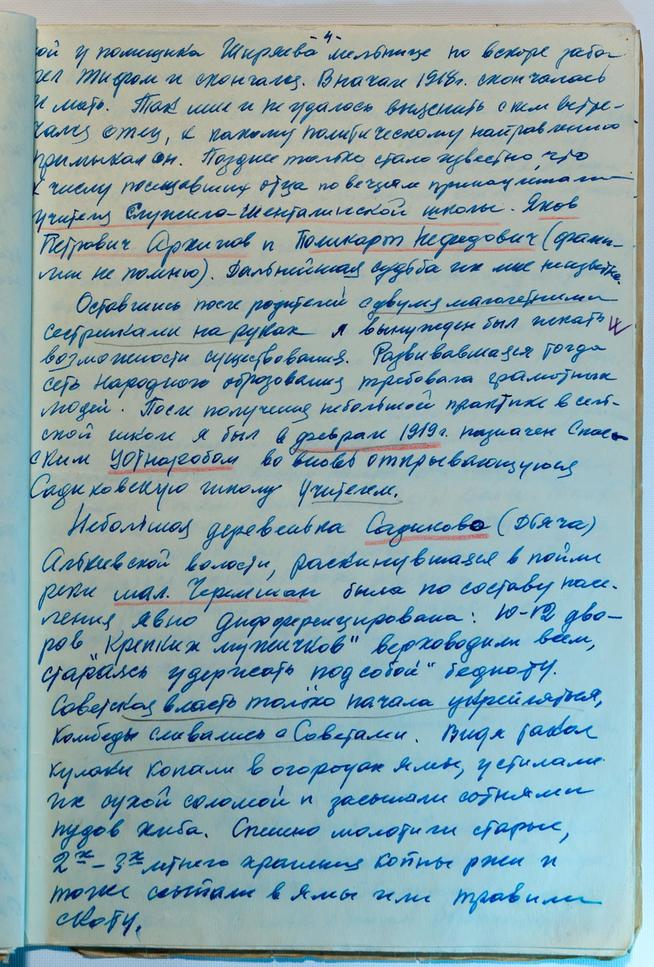 -4-
ой у помещика Ширяева мельнице но вскоре забо-
лел тифом и скончался. В начале 1918г. скончалась
и мать. Так мне и не удалось выяснить с кем встре-
чался отец, к какому политическому направлению
примыкал он. Позднее только стало известно, что
к числу посещавших отца по вечерам принадлежали
учителя Служило-Шенталинской школы. Яков
Петрович Архипов и Поликарп Нефедович (фами-
лии не помню). Дальнейшая судьба их мне неизвестна.
Оставшись после родителей с двумя малолетними
сестренками на руках я вынужден был искать
возможности существования. Развивавшаяся тогда
сеть народного образования требовала грамотных
людей. После получения небольшой практики в сель-
ской школе я был в феврале 1919г. назначен Спас-
ским УОтнаробом во вновь открывающуюся
Садиковскую школу учителем.
Небольшая деревенька Садиково (Дьяча)
Алькеевской волости, раскинувшаяся в пойме
реки мал. Черемшан была по составу насе-
ления явно дифференцирована: 10-12 дво-
ров "крепких мужичков" верховодили всем,
стараясь удержать "под собой" бедноту.
Советская власть только начала укрепляться,
комбеды сливались с Советами. Видя такое
кулаки копали в огородах ямы, устилали
их сухой соломой и засыпали сотнями
пудов хлеба. Спешно молотили старые,
2х-3х летнего хранения копны ржи и
тоже ссыпали в ямы или травили
скоту.